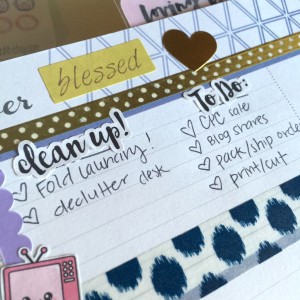 blessed
er
clean up!
Fold laundry!
declutter desk
To Do:
CPC sale
Blog shares
pack/ship orde
print/cut